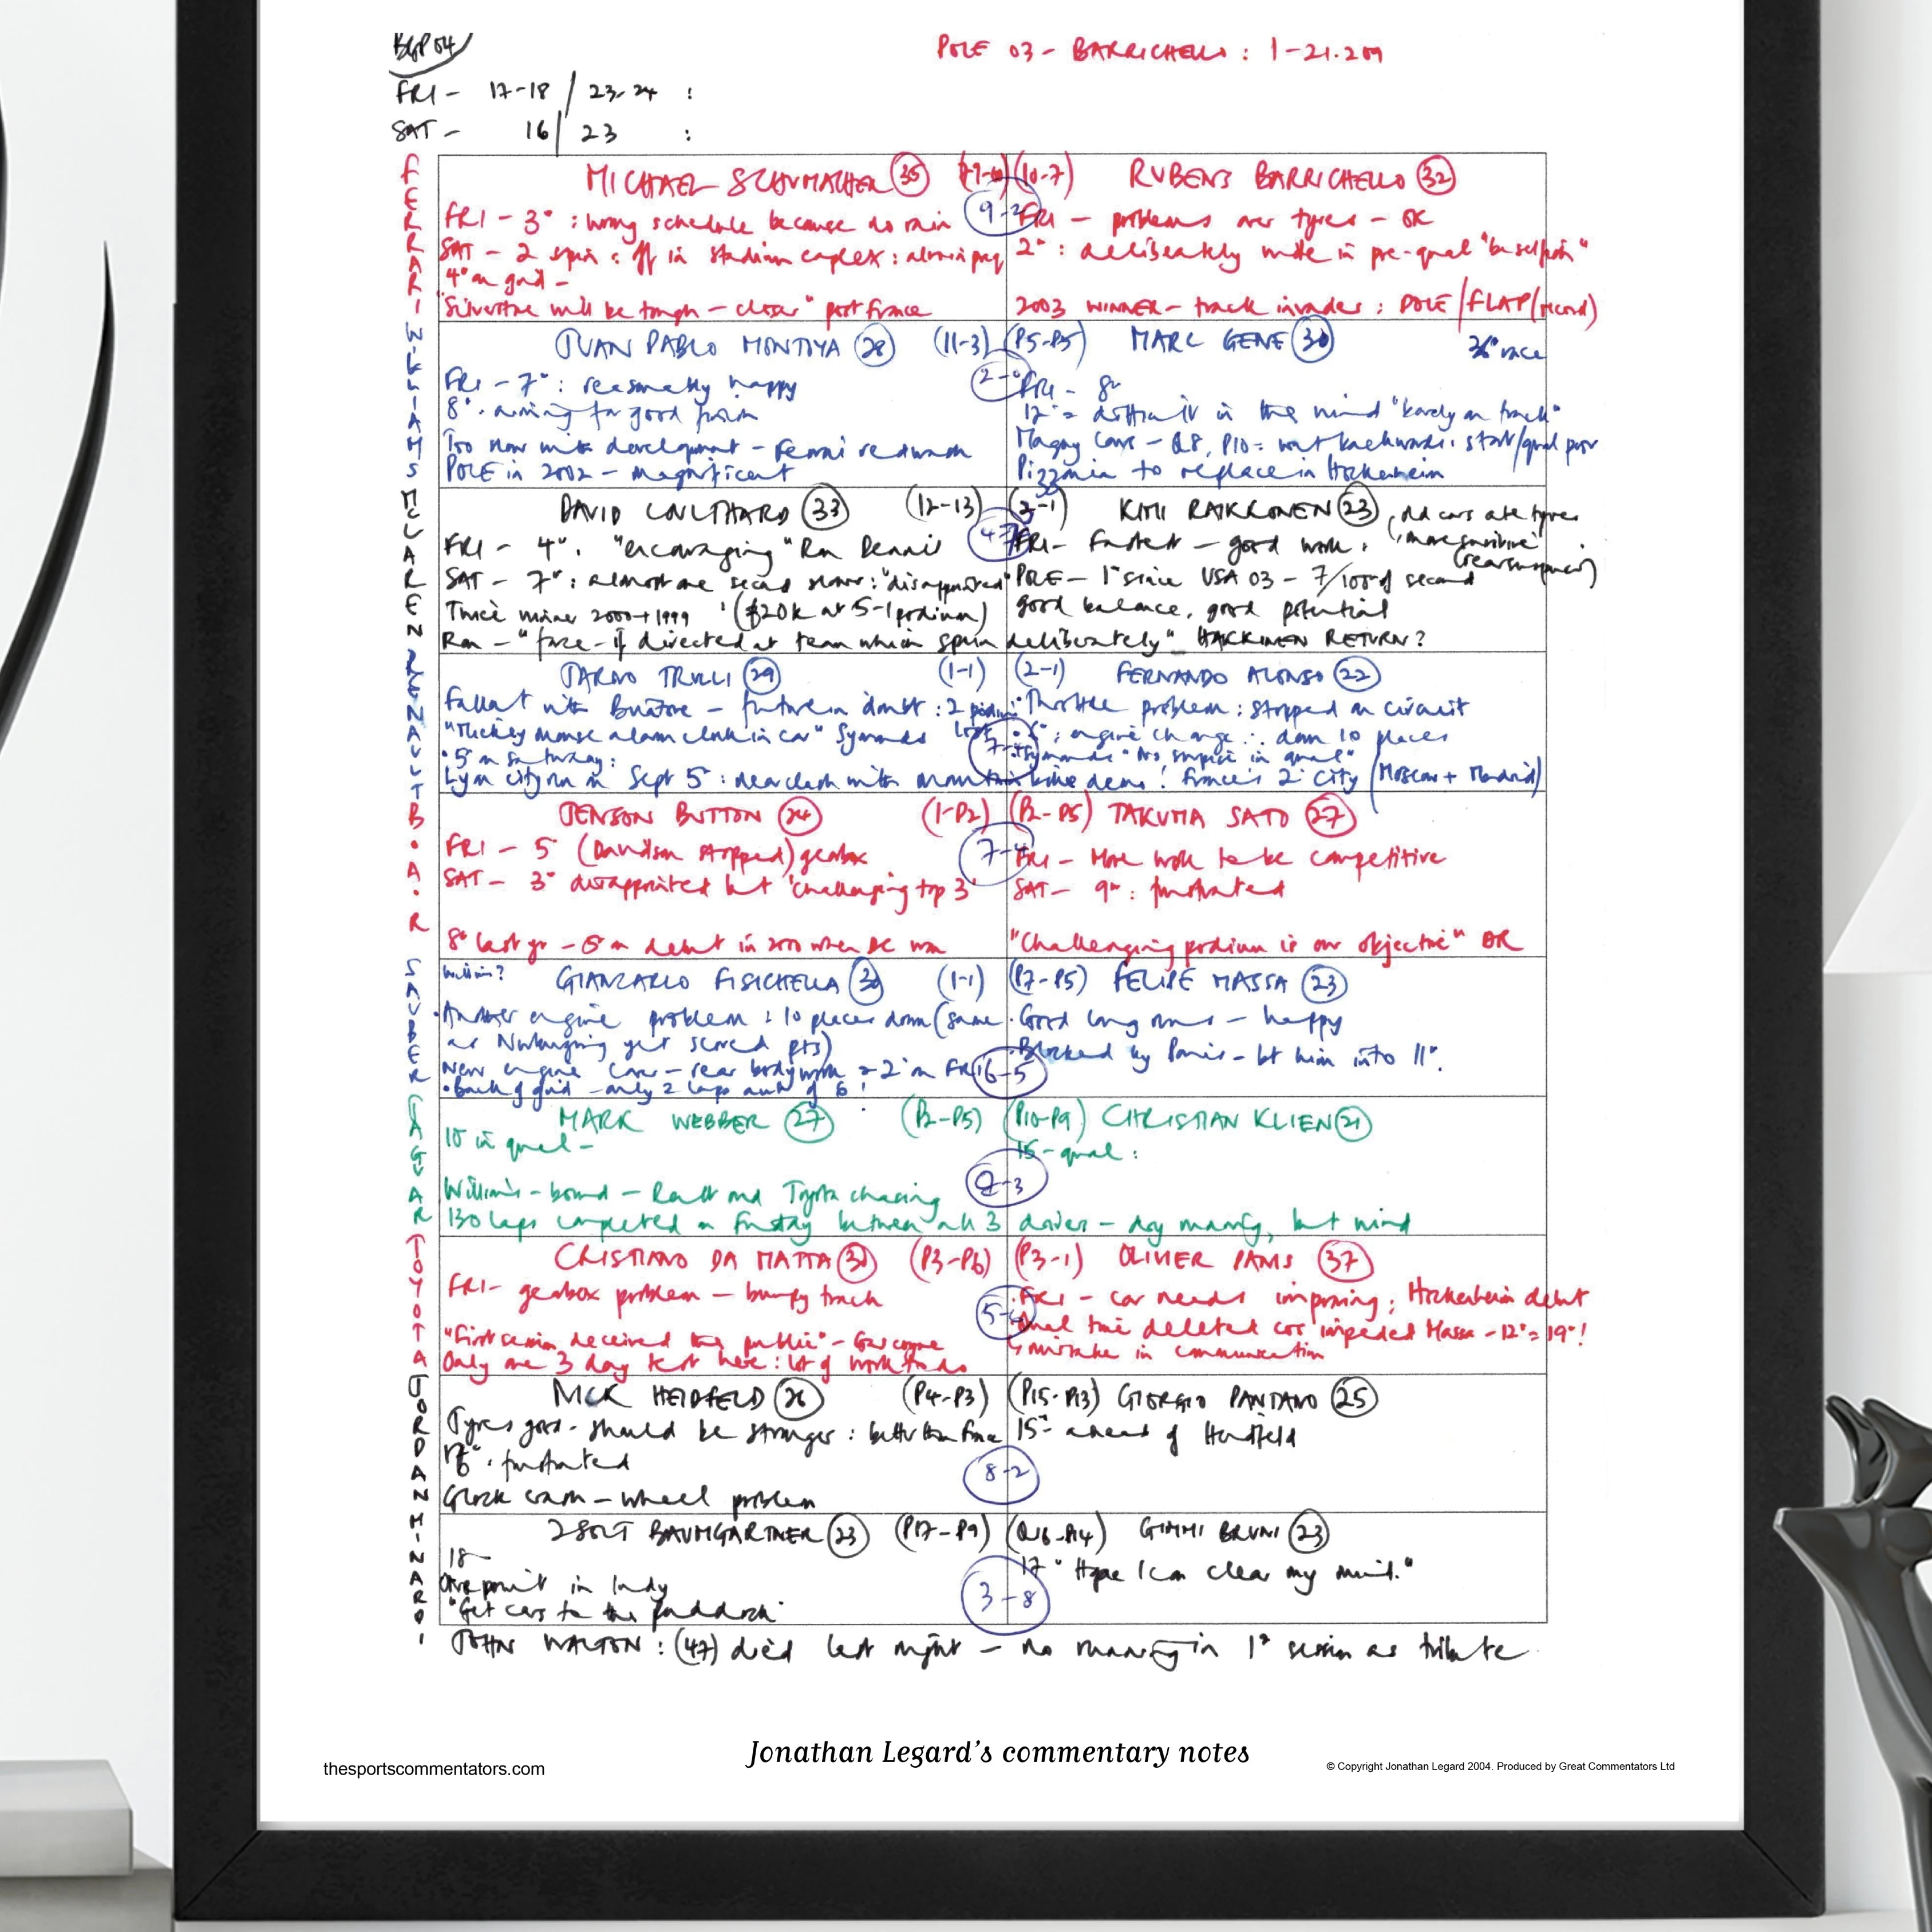 BGP 04
POLE 03 - BARRICHELLO : 1-21.209
FRI - 17-18 / 23-24 :
SAT - 16 / 23 :
FERRARI
MICHAEL SCHUMACHER 35
(10-7) RUBENS BARRICHELLO 32
9-2
FRI - 3° : wrong schedule because no rain
FRI - problems over tyres - OK
SAT - 2 spin : off in stadium complex :
2° : deliberately wide in pre-qual
4° on grid -
"Silverstone will be tough - closer" post France
2003 WINNER - track invader : POLE / FLAP (record)
WILLIAMS
JUAN PABLO MONTOYA 28 (11-3)
(P5-P5) MARC GENE 30
36° race
FRI - 7° : reasonably happy
FRI - 8°
8° : aiming for good
12° = difficult in the wind "barely on track"
Too slow with development - Ferrari
Magny Cours - Q8, P10 = went backwards : start/qual poor
POLE in 2002 - magnificent
Pizzonia to replace in Hockenheim
MCLAREN
DAVID COULTHARD 33 (12-13)
KIMI RAIKKONEN 23
FRI - 4° . "encouraging" Ron Dennis
FRI - Fastest - good work .
SAT - 7° : almost one second slower : "disappointed"
POLE - 1° since USA 03 - 7/100 of second
Twice winner 2000 + 1999 (£20k at 5-1 podium)
good balance, good potential
Ron - "farce - if directed at team which spun deliberately" HAKKINEN RETURN?
RENAULT
JARNO TRULLI 29 (1-1)
(2-1) FERNANDO ALONSO 22
Fallout with Briatore - future in doubt :
Throttle problem : stopped on circuit
"Mickey mouse alarm clock in car" Symonds
engine change ∴ down 10 places
5° on Saturday :
Symonds "No surprise in qual"
Lyon city run on Sept 5° : France's 2° city (Moscow + Madrid)
B.A.R
JENSON BUTTON 24 (1-P2)
(P2-P5) TAKUMA SATO 27
7-4
FRI - 5° (Davidson stopped) gearbox
FRI - More work to be competitive
SAT - 3° disappointed but 'challenging top 3'
SAT - 9° : frustrated
8° last yr - 5° on debut in 2000 when DC won
"Challenging podium is our objective" DR
SAUBER
Williams?
GIANCARLO FISICHELLA 30 (1-1)
(P7-P5) FELIPE MASSA 23
Another engine problem : 10 places down (same
Good long runs - happy
as Nurburgring yet scored pts)
Blocked by Panis - let him into 11°.
New engine cover - rear bodywork
6-5
back of grid - only 2 laps
JAGUAR
MARK WEBBER 27 (P2-P5)
(P10-P9) CHRISTIAN KLIEN 21
10 in qual -
15 - qual :
Williams-bound - Renault and Toyota chasing
130 laps completed on Friday between all 3 drivers - dry running, but wind
TOYOTA
CRISTIANO DA MATTA 30 (P3-P6)
(P3-1) OLIVIER PANIS 37
FRI - gearbox problem - bumpy track
FRI - car needs improving ; Hockenheim debut
"First session deceived the public" - Gascoyne
Qual time deleted cos impeded Massa - 12° = 19° !
Only one 3 day test here : lot of work to do
mistake in communication
JORDAN
NICK HEIDFELD 26 (P4-P3)
(P15-P13) GIORGIO PANTANO 25
Tyres good - should be stronger : better than France
15° ahead of Heidfeld
frustrated
8-2
Glock crash - wheel problem
MINARDI
ZSOLT BAUMGARTNER 23 (P17-P9)
(Q16-P14) GIMMI BRUNI 23
18
17 "Hope I can clear my mind."
One point in Indy
3-8
"Get cars to the paddock"
JOHN WALTON : (47) died last night - no running in 1° session as tribute
Jonathan Legard's commentary notes
thesportscommentators.com
© Copyright Jonathan Legard 2004. Produced by Great Commentators Ltd